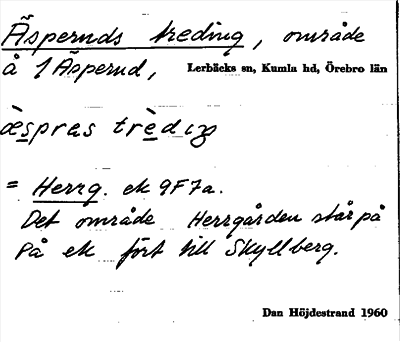 Äspernds treding, område
å 1 Äspernd, Lerbäcks sn, Kumla hd, Örebro län
æ̀spras trèdıŋ
= Herrg. ek 9F7a.
Det område Herrgården står på
På ek fört till Skyllberg.
Dan Höjdestrand 1960